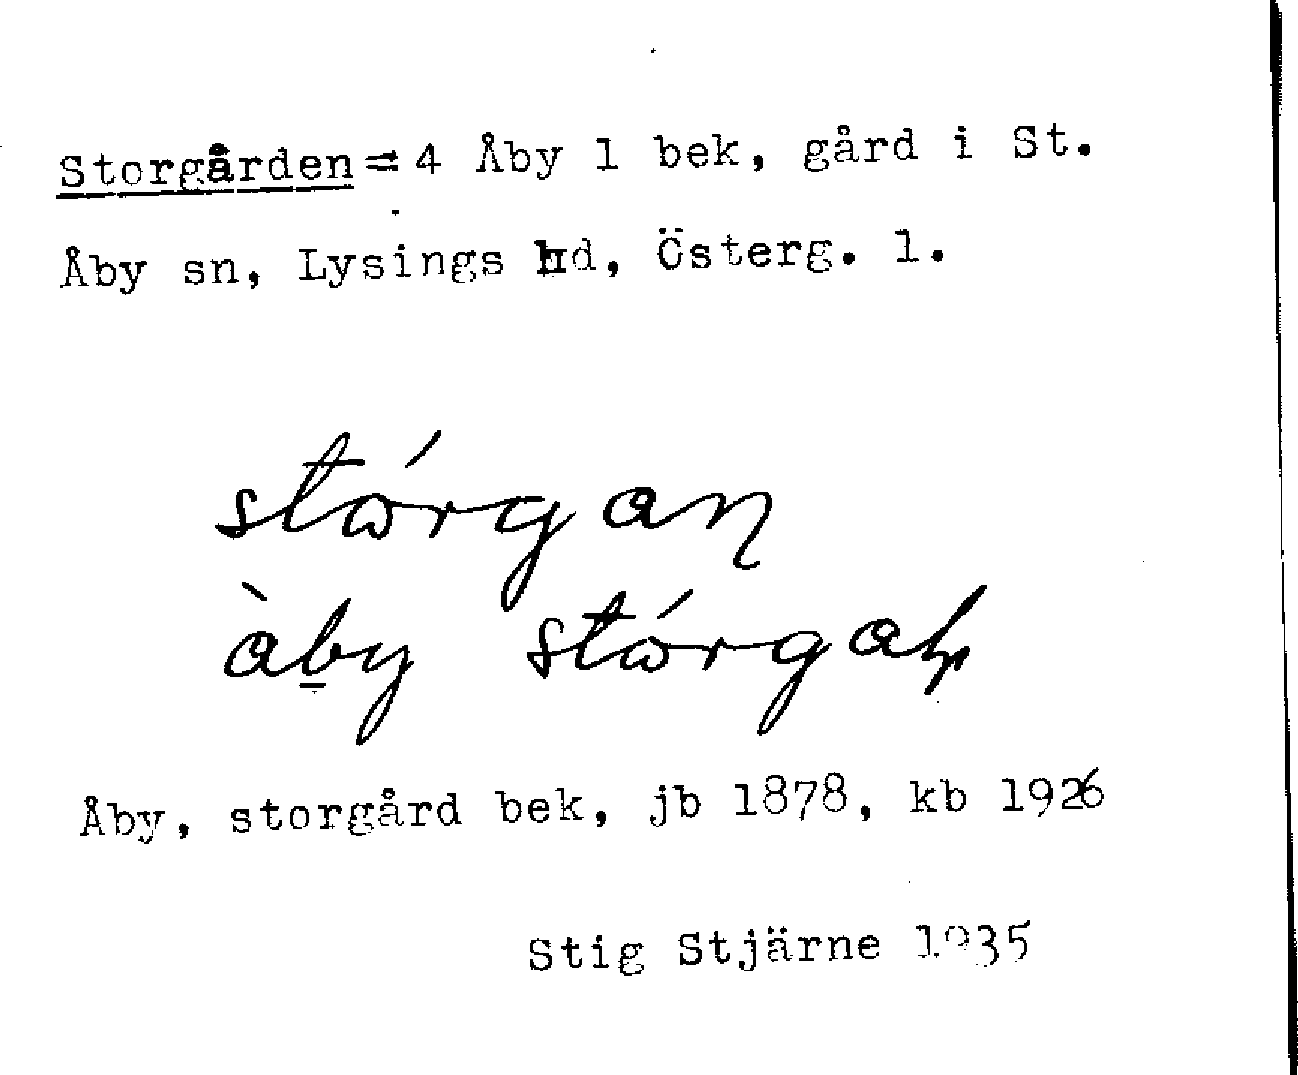 Storgården = 4 Åby 1 bek, gård i St.
Åby sn, Lysings hd, Österg. l.
stórgan
àby stórgaƕ
Åby, storgård bek, jb 1878, kb 1926
Stig Stjärne 1935